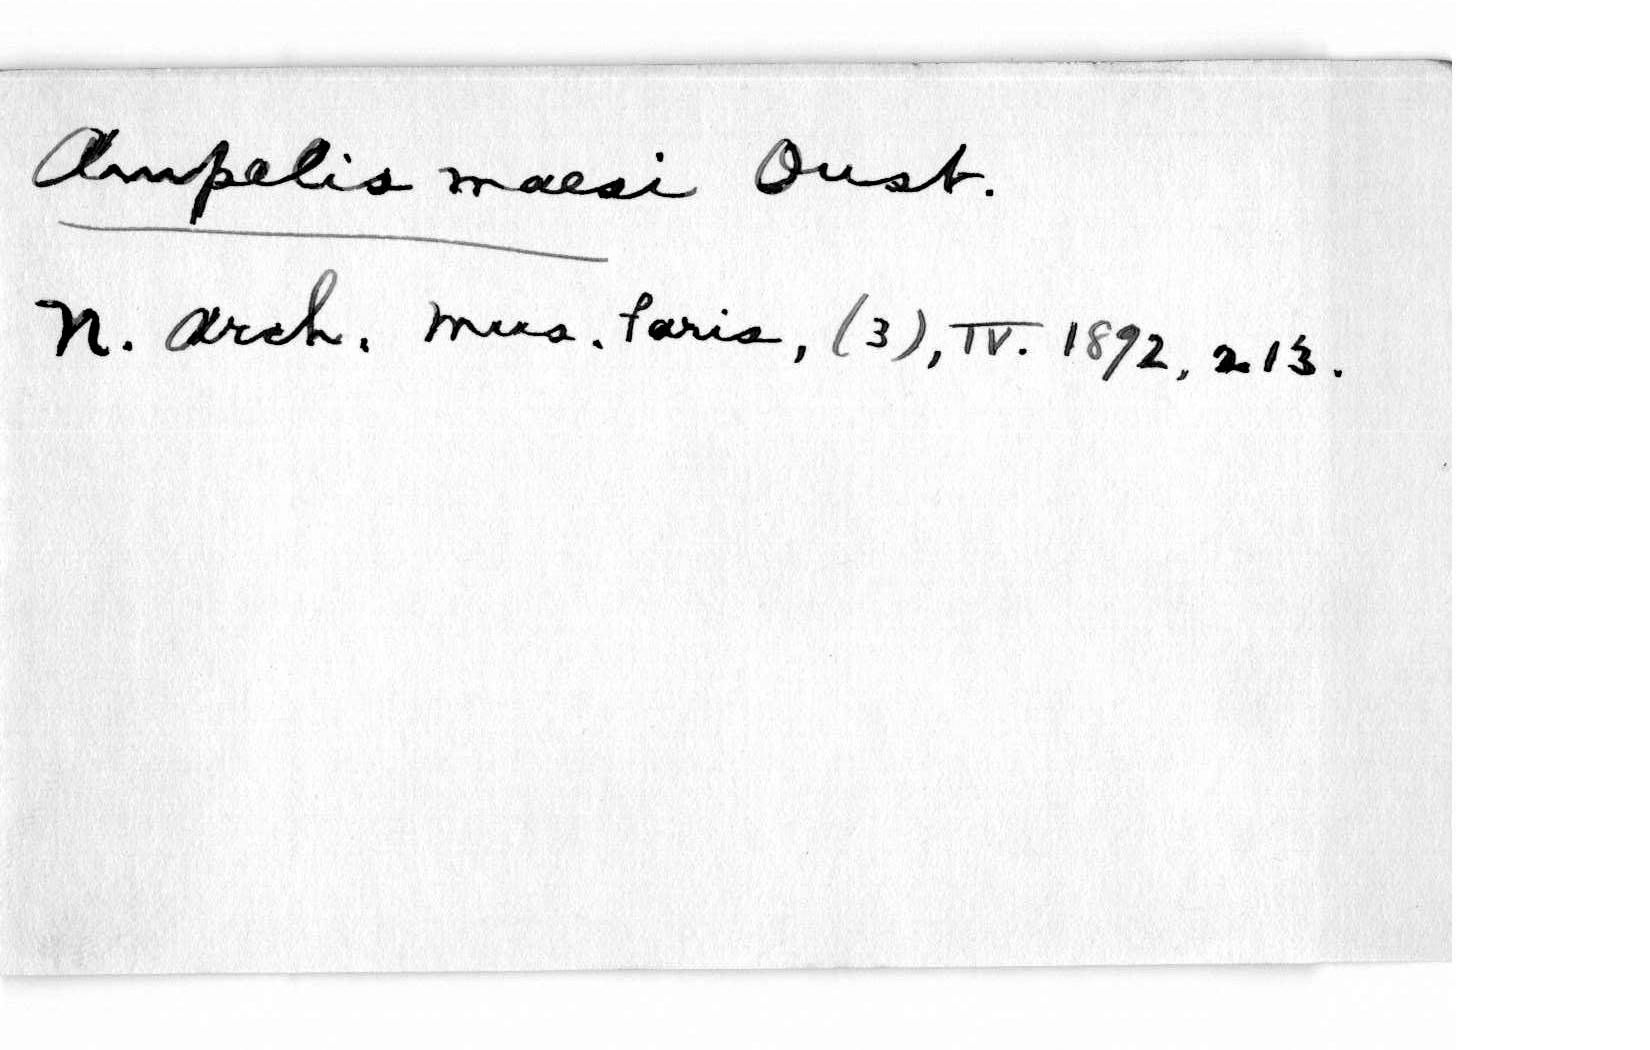 Ampelis maesi Oust.
N. Arch. Mus. Paris, (3), IV. 1892, 213.